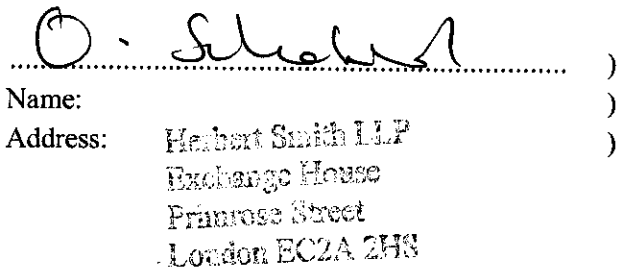 O.
)
Name: )
Address: Herbert Smith LLP )
Exchange House
Primrose Street
London EC2A 2HS